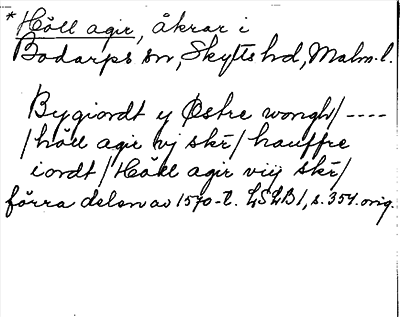 * Höll agir, åkrar i
Bodarps sn, Skytts hd, Malm. l.
Bygiordt y Østre wongh/ ----
/höll agir vj skr/ hauffre
iordt/ Höll agir viij skr/
förra delen av 1570-t. LSLB 1, s. 354. orig.